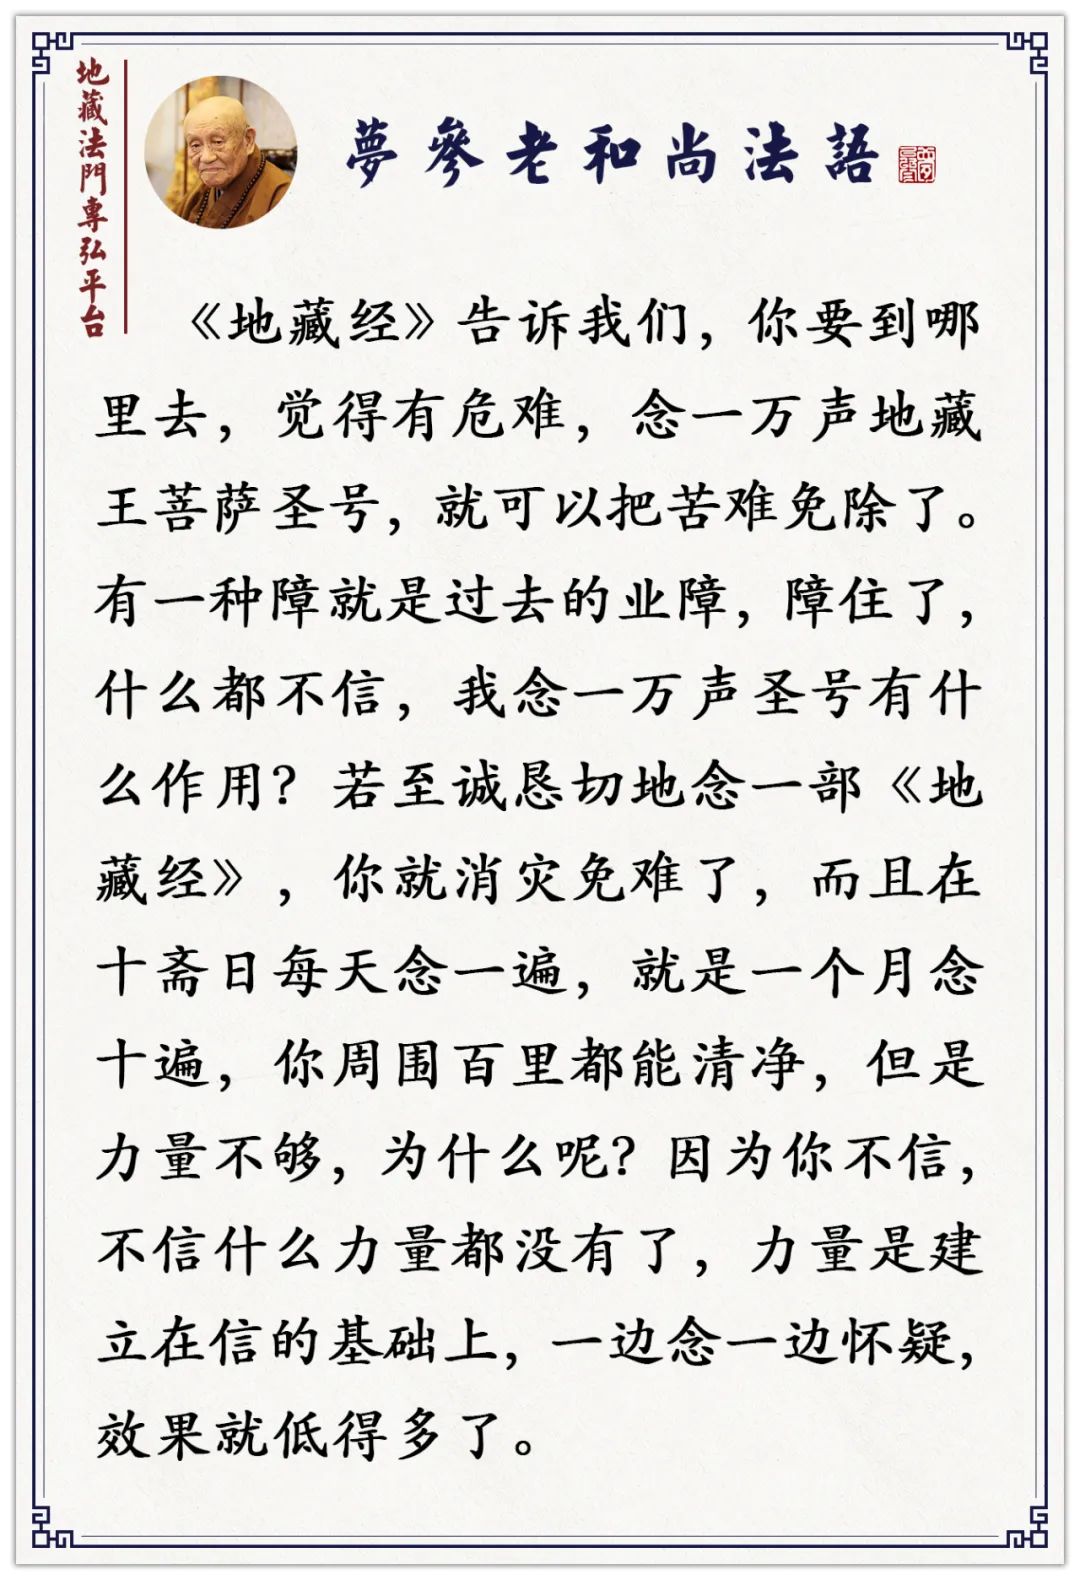 地藏法門專弘平台
夢參老和尚法語
《地藏经》告诉我们，你要到哪
里去，觉得有危难，念一万声地藏
王菩萨圣号，就可以把苦难免除了。
有一种障就是过去的业障，障住了，
什么都不信，我念一万声圣号有什
么作用？若至诚恳切地念一部《地
藏经》，你就消灾免难了，而且在
十斋日每天念一遍，就是一个月念
十遍，你周围百里都能清净，但是
力量不够，为什么呢？因为你不信，
不信什么力量都没有了，力量是建
立在信的基础上，一边念一边怀疑，
效果就低得多了。